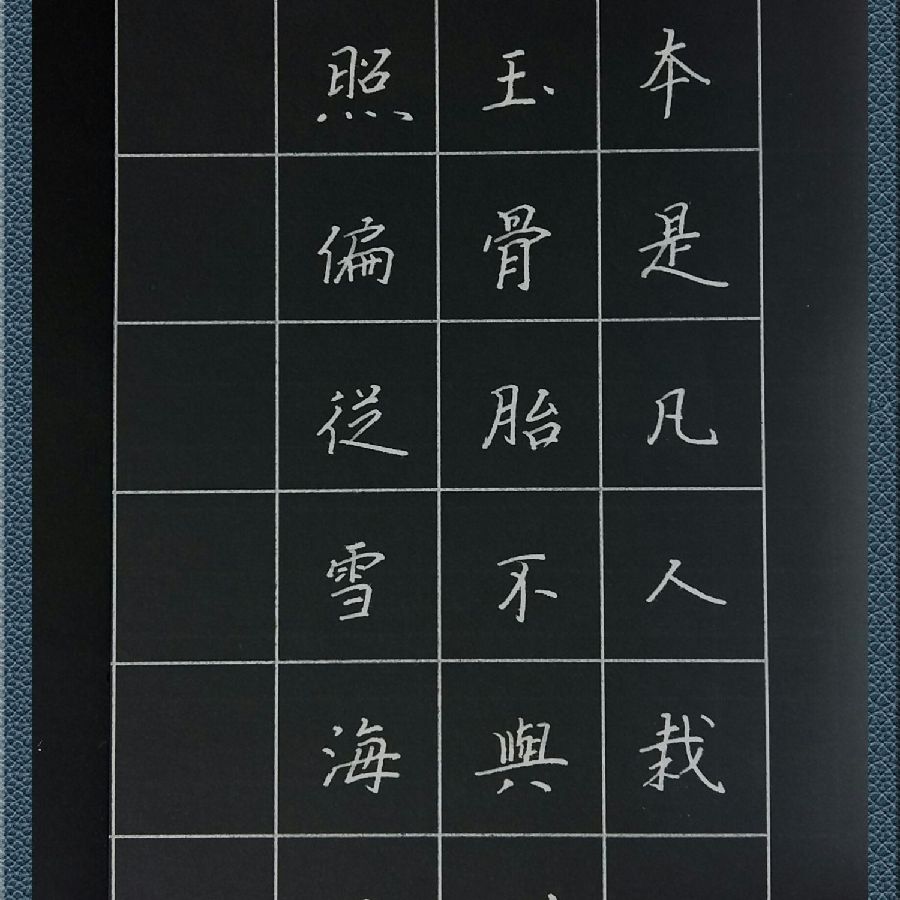 本是凡人栽
玉骨胎不與
照偏從雪海